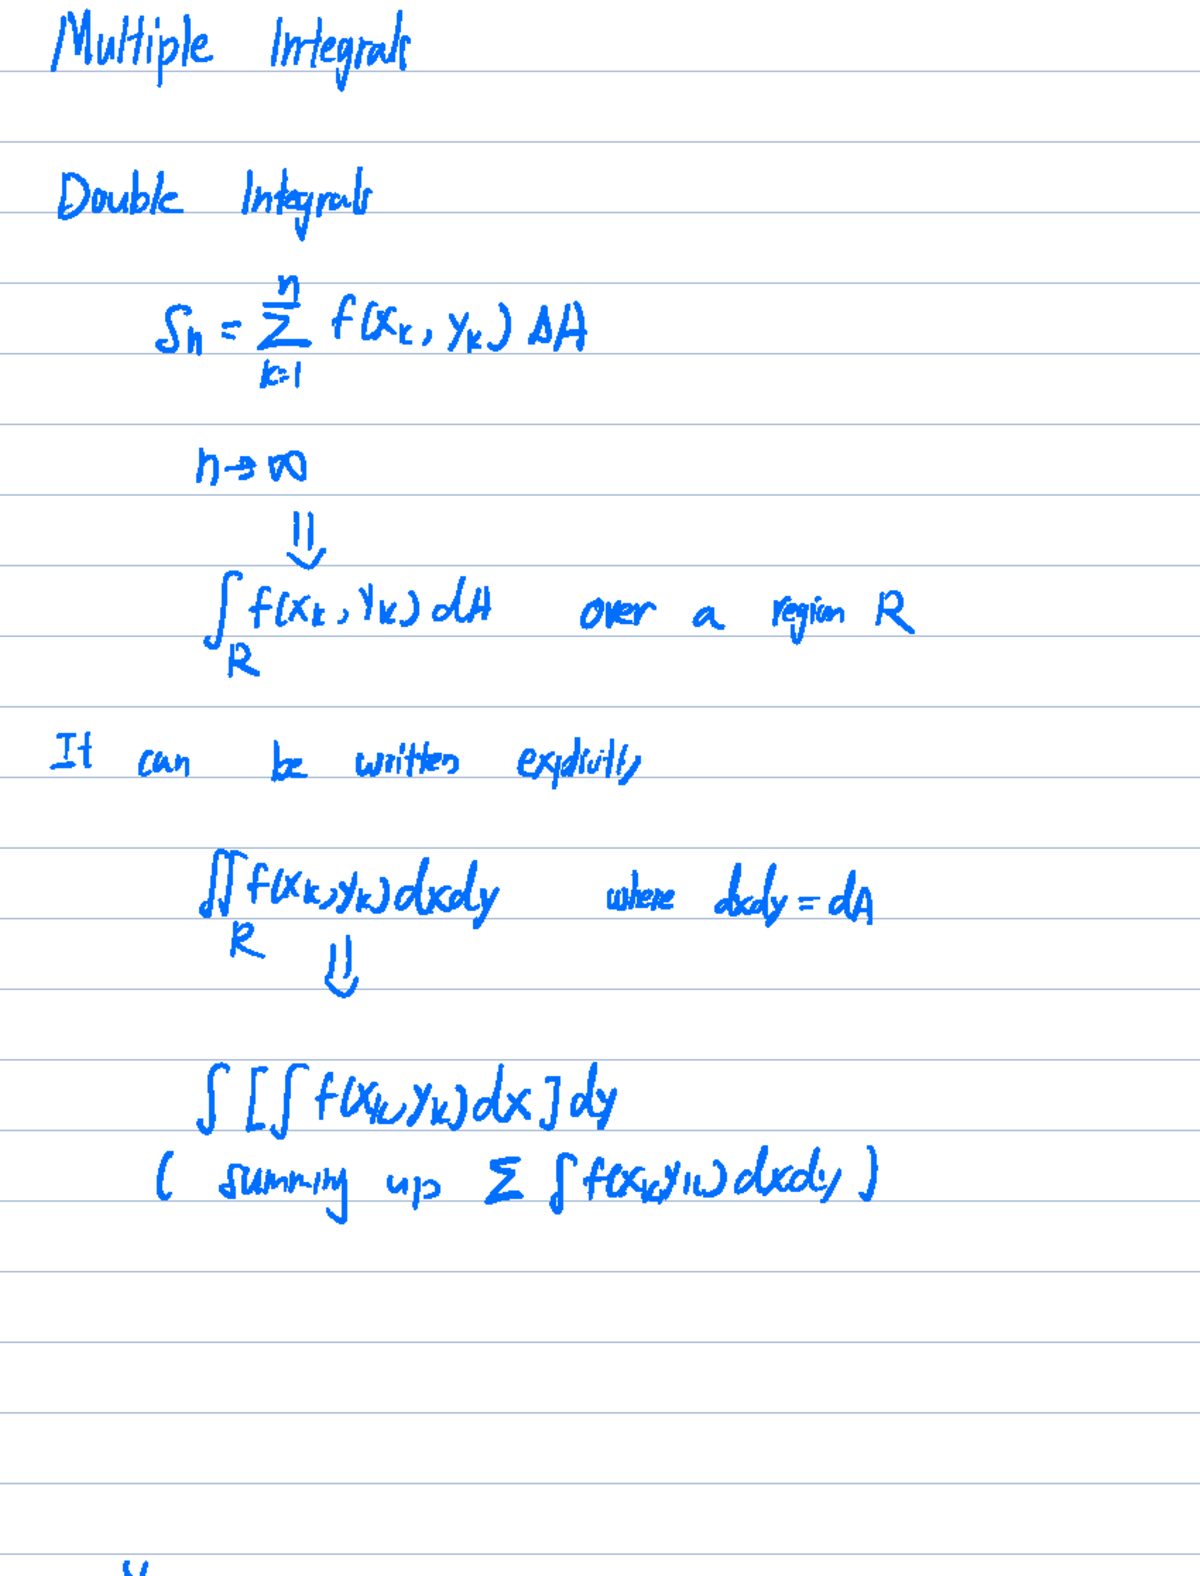 Multiple Integrals
Double Integrals
Sn = ∑_{k=1}^{n} f(x_k, y_k) ΔA
n → ∞
⇓
∫_R f(x_k, y_k) dA over a region R
It can be written explicitly
∬_R f(x_k, y_k) dxdy where dxdy = dA
⇓
∫ [∫ f(x_k, y_k) dx] dy
( summing up ∑ ∫ f(x_k, y_k) dxdy )